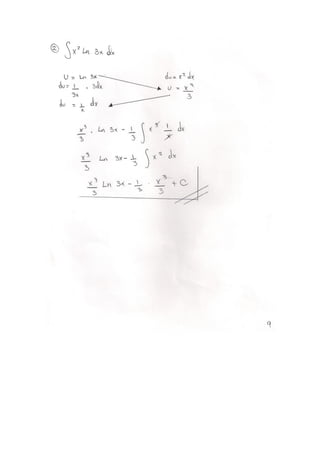 ② ∫x² Ln 3x dx
U = Ln 3x    du = x² dx
du = 1/3x . 3dx    U = x³/3
du = 1/x dx
x³/3 . Ln 3x - 1/3 ∫ x³ 1/x dx
x³/3 Ln 3x - 1/3 ∫ x² dx
x³/3 Ln 3x - 1/3 . x³/3 + C
9